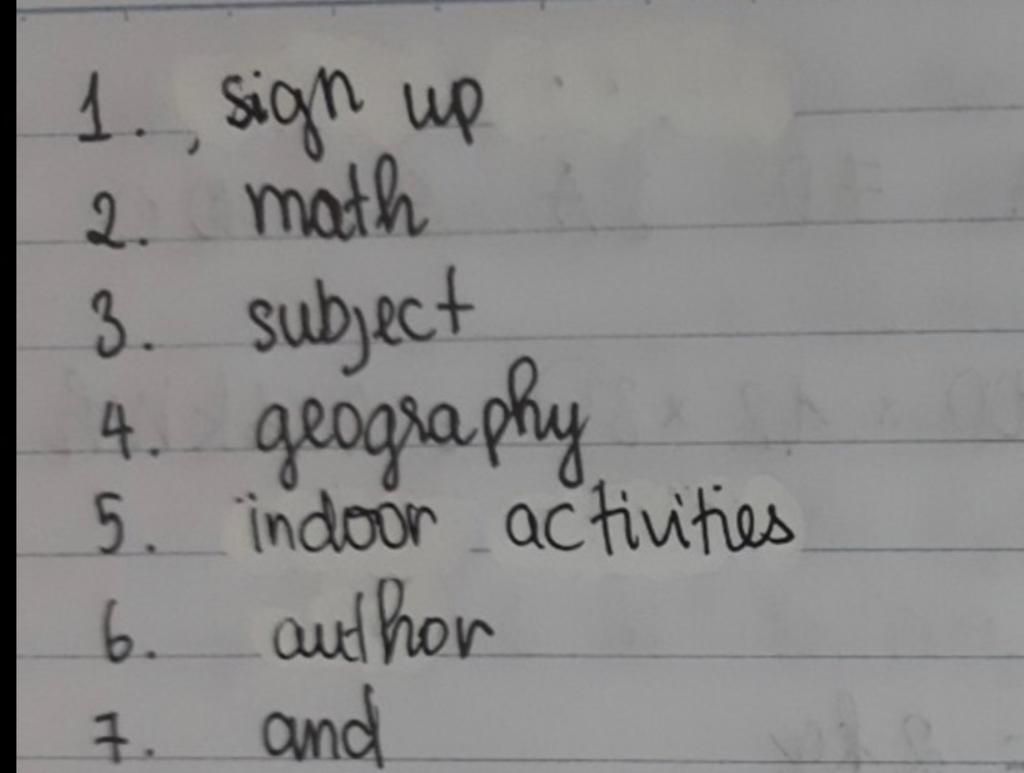 1. , sign up
2. math
3. subject
4. geography
5. indoor activities
6. author
7. and